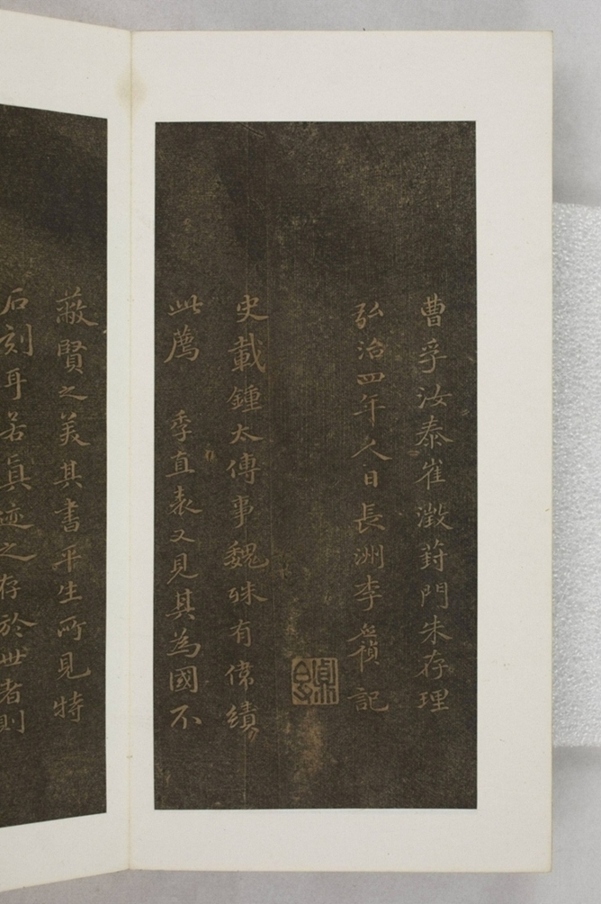 曹孚汝泰崔澂葑門朱存理
弘治四年人日長洲李應禎記
史載鍾太傅事魏殊有偉績
此薦 季直表又見其為國不
蔽賢之美其書平生所見特
石刻耳若眞迹之存於世者則